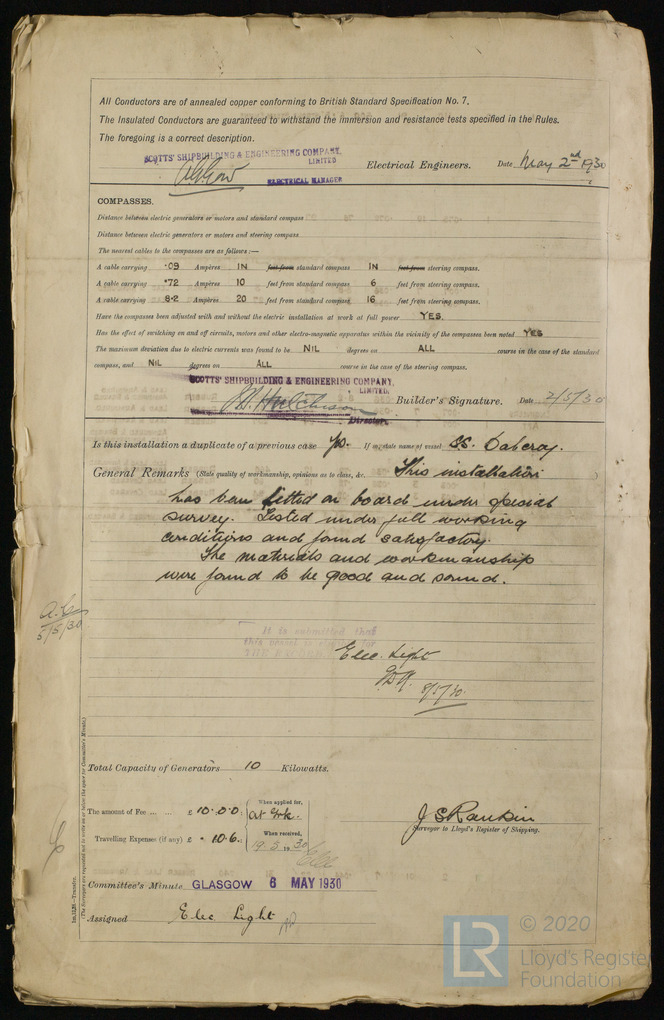 All Conductors are of annealed copper conforming to British Standard Specification No. 7.
The Insulated Conductors are guaranteed to withstand the immersion and resistance tests specified in the Rules.
The foregoing is a correct description.
SCOTTS' SHIPBUILDING & ENGINEERING COMPANY,
LIMITED
Electrical Engineers. Date May 2nd 1930
ELECTRICAL MANAGER
COMPASSES.
Distance between electric generators or motors and standard compass
Distance between electric generators or motors and steering compass
The nearest cables to the compasses are as follows:—
A cable carrying .09 Ampères IN feet from standard compass IN feet from steering compass.
A cable carrying .72 Ampères 10 feet from standard compass 6 feet from steering compass.
A cable carrying 8.2 Ampères 20 feet from standard compass 16 feet from steering compass.
Have the compasses been adjusted with and without the electric installation at work at full power YES.
Has the effect of switching on and off circuits, motors and other electro-magnetic apparatus within the vicinity of the compasses been noted YES
The maximum deviation due to electric currents was found to be NIL degrees on ALL course in the case of the standard
compass, and NIL degrees on ALL course in the case of the steering compass.
SCOTTS' SHIPBUILDING & ENGINEERING COMPANY,
LIMITED.
Hutchison Builder's Signature. Date 2/5/30
Director.
Is this installation a duplicate of a previous case Yes. If so, state name of vessel SS.
General Remarks (State quality of workmanship, opinions as to class, &c. This installation )
has been fitted on board under special
survey. Tested under full working
conditions and found satisfactory.
The materials and workmanship
were found to be good and sound.
5/5/30
It is submitted that
this vessel is for
THE RECORD
Elec. Light
8/5/30
Total Capacity of Generators 10 Kilowatts.
The amount of Fee ... ... £ 10.0.0 : When applied for,
Travelling Expenses (if any) £ - 10.6. : When received,
19.5.1930
J S Rankin
Surveyor to Lloyd's Register of Shipping.
Committee's Minute GLASGOW 6 MAY 1930
Assigned Elec Light
(The Surveyors are requested not to write on or below the space for Committee's Minute.)
© 2020
LR
Lloyd's Register
Foundation